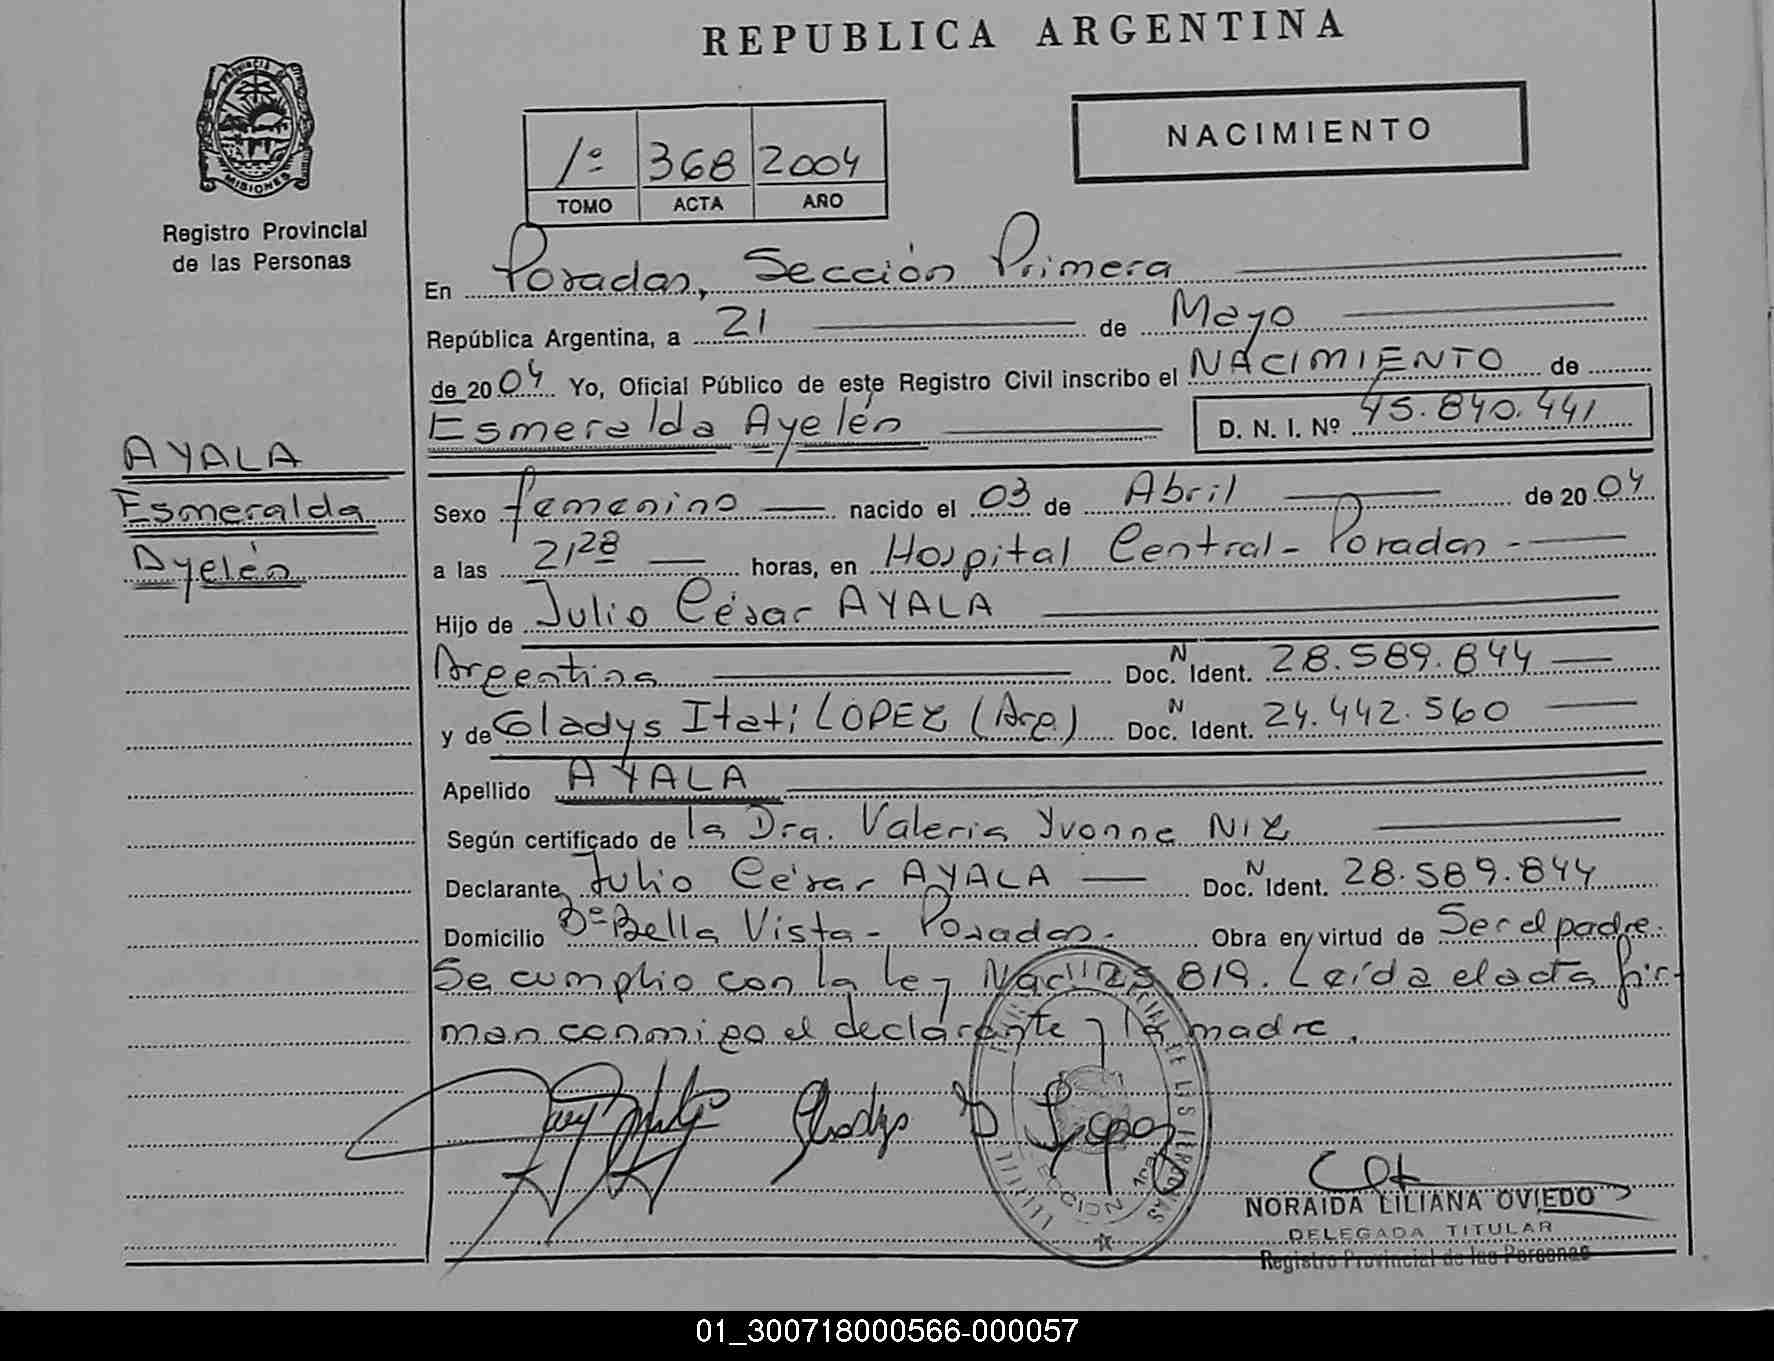 REPUBLICA ARGENTINA
PROVINCIA DE
MISIONES
Registro Provincial
de las Personas
1º 368 2004
TOMO ACTA AÑO
NACIMIENTO
En Posadas, Sección Primera
República Argentina, a 21 de Mayo
de 2004 Yo, Oficial Público de este Registro Civil inscribo el NACIMIENTO de
Esmeralda Ayelén D. N. I. Nº 45.840.441
AYALA
Esmeralda
Ayelén
Sexo femenino nacido el 03 de Abril de 2004
a las 21,28 horas, en Hospital Central - Posadas -
Hijo de Julio César AYALA
Argentina Doc. N Ident. 28.589.844
y de Gladys Itatí LOPEZ (Arg) Doc. N Ident. 24.442.560
Apellido AYALA
Según certificado de la Dra. Valeria Yvonne NIZ
Declarante Julio César AYALA Doc. N Ident. 28.589.844
Domicilio Bº Bella Vista - Posadas. Obra en virtud de Ser el padre.
Se cumplio con la ley Nac. 25.819. Leída el acta fir-
man conmigo el declarante y la madre.
Gladys I Lopez
NORAIDA LILIANA OVIEDO
DELEGADA TITULAR
Registro Provincial de las Personas
01_300718000566-000057